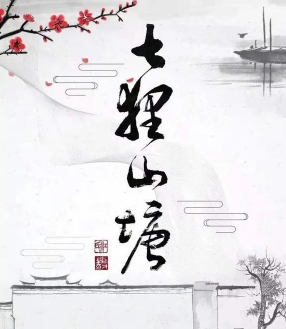 七狸山塘